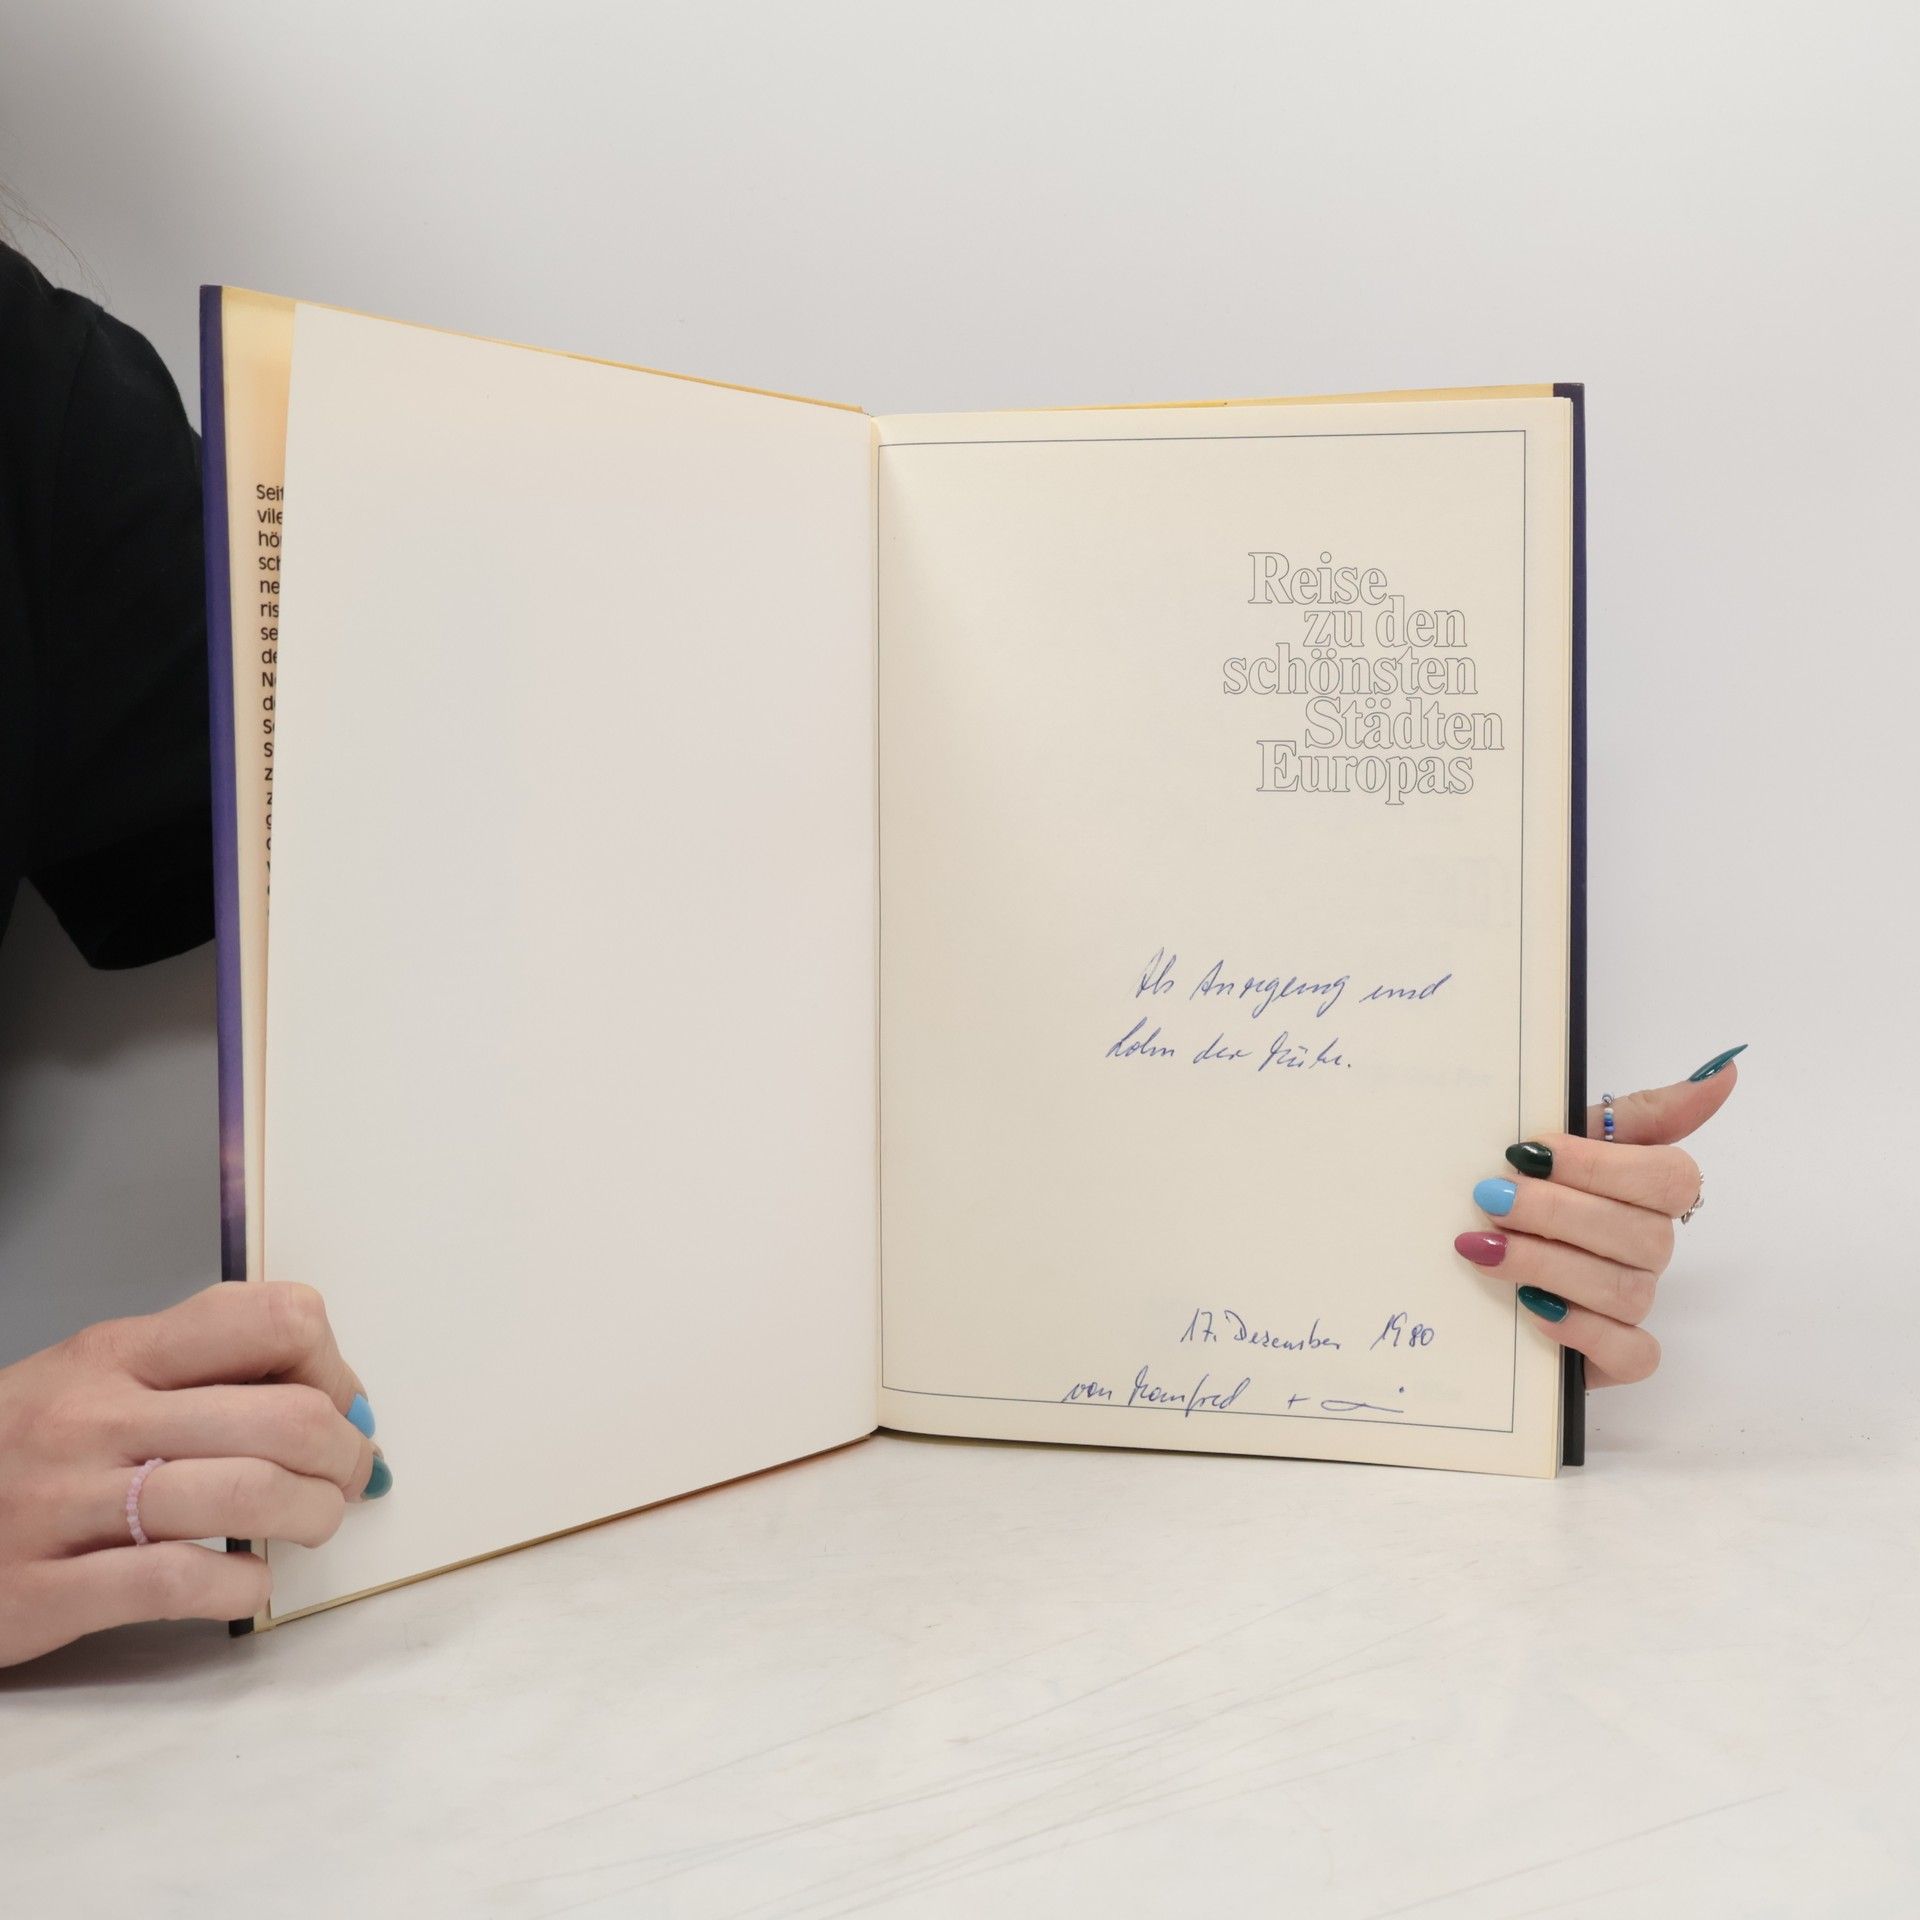 Seit
vile
hö
sch
ne
ris
se
de
N
d
S
S
z
z
g
Reise
zu den
schönsten
Städten
Europas
Als Anregung und
Lohn der Mühe.
17. Dezember 1980
von Manfred +